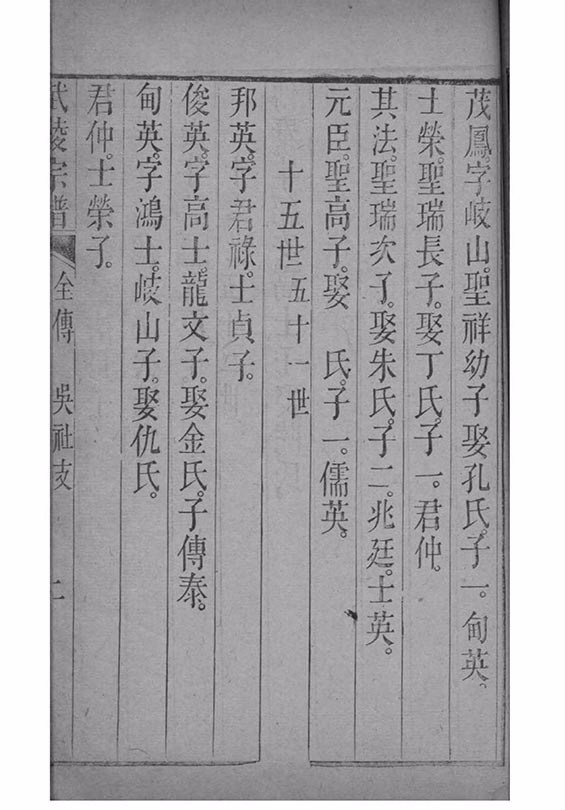 茂鳳。字岐山。聖祥幼子娶孔氏。子一。甸英。
士榮。聖瑞長子。娶丁氏。子一。君仲。
其法。聖瑞次子。娶朱氏。子二。兆廷。士英。
元臣。聖高子。娶　氏。子一。儒英。
十五世五十一世
邦英。字君祿。士貞子。
俊英。字高士。龍文子。娶金氏。子傳泰。
甸英。字鴻士。岐山子。娶仇氏。
君仲。士榮子。
武陵宗譜　全傳　吳社支　二